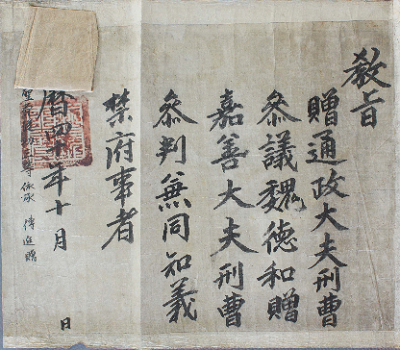 敎旨
贈通政大夫刑曹
叅議魏德和贈
嘉善大夫刑曹
叅判兼同知義
禁府事者
曆四十年十月 日
等依承 傳追贈